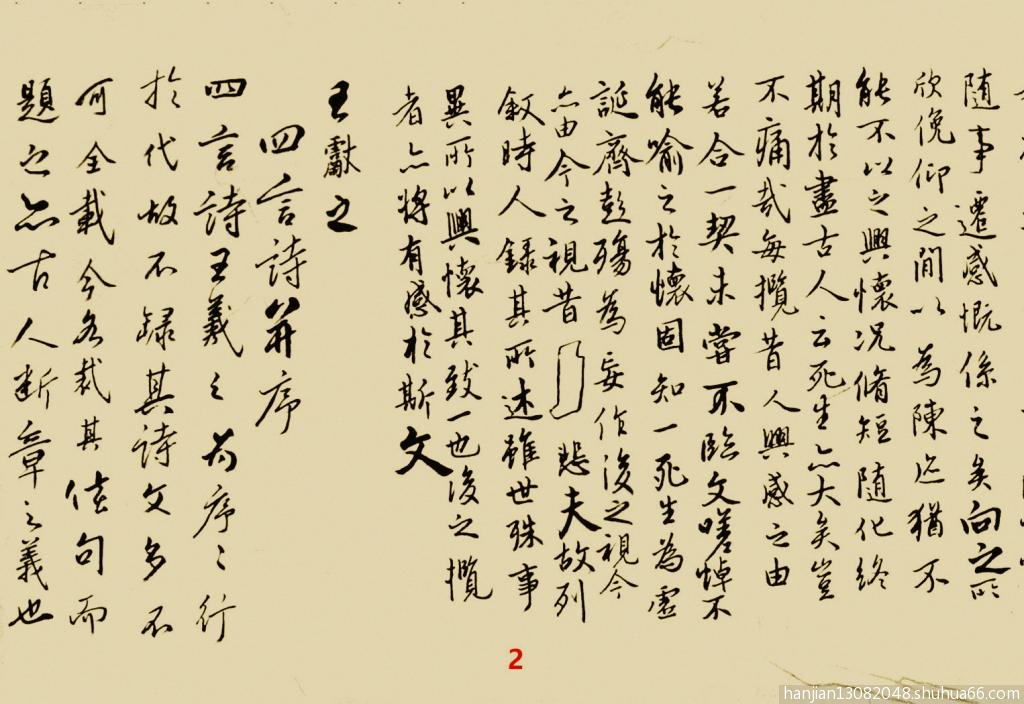 随事遷感慨係之矣向之所
欣俛仰之間以為陳迹猶不
能不以之興懷况脩短随化終
期於盡古人云死生亦大矣豈
不痛哉每攬昔人興感之由
若合一契未嘗不臨文嗟悼不
能喻之於懷固知一死生為虛
誕齊彭殤為妄作後之視今
亦由今之視昔 悲夫故列
敘時人錄其所述雖世殊事
異所以興懷其致一也後之攬
者亦將有感於斯文
王獻之
四言詩并序
四言詩王羲之為序序行
於代故不錄其詩文多不
可全載今各裁其佳句而
題之亦古人斷章之義也
2
hanjian13082048.shuhua66.com